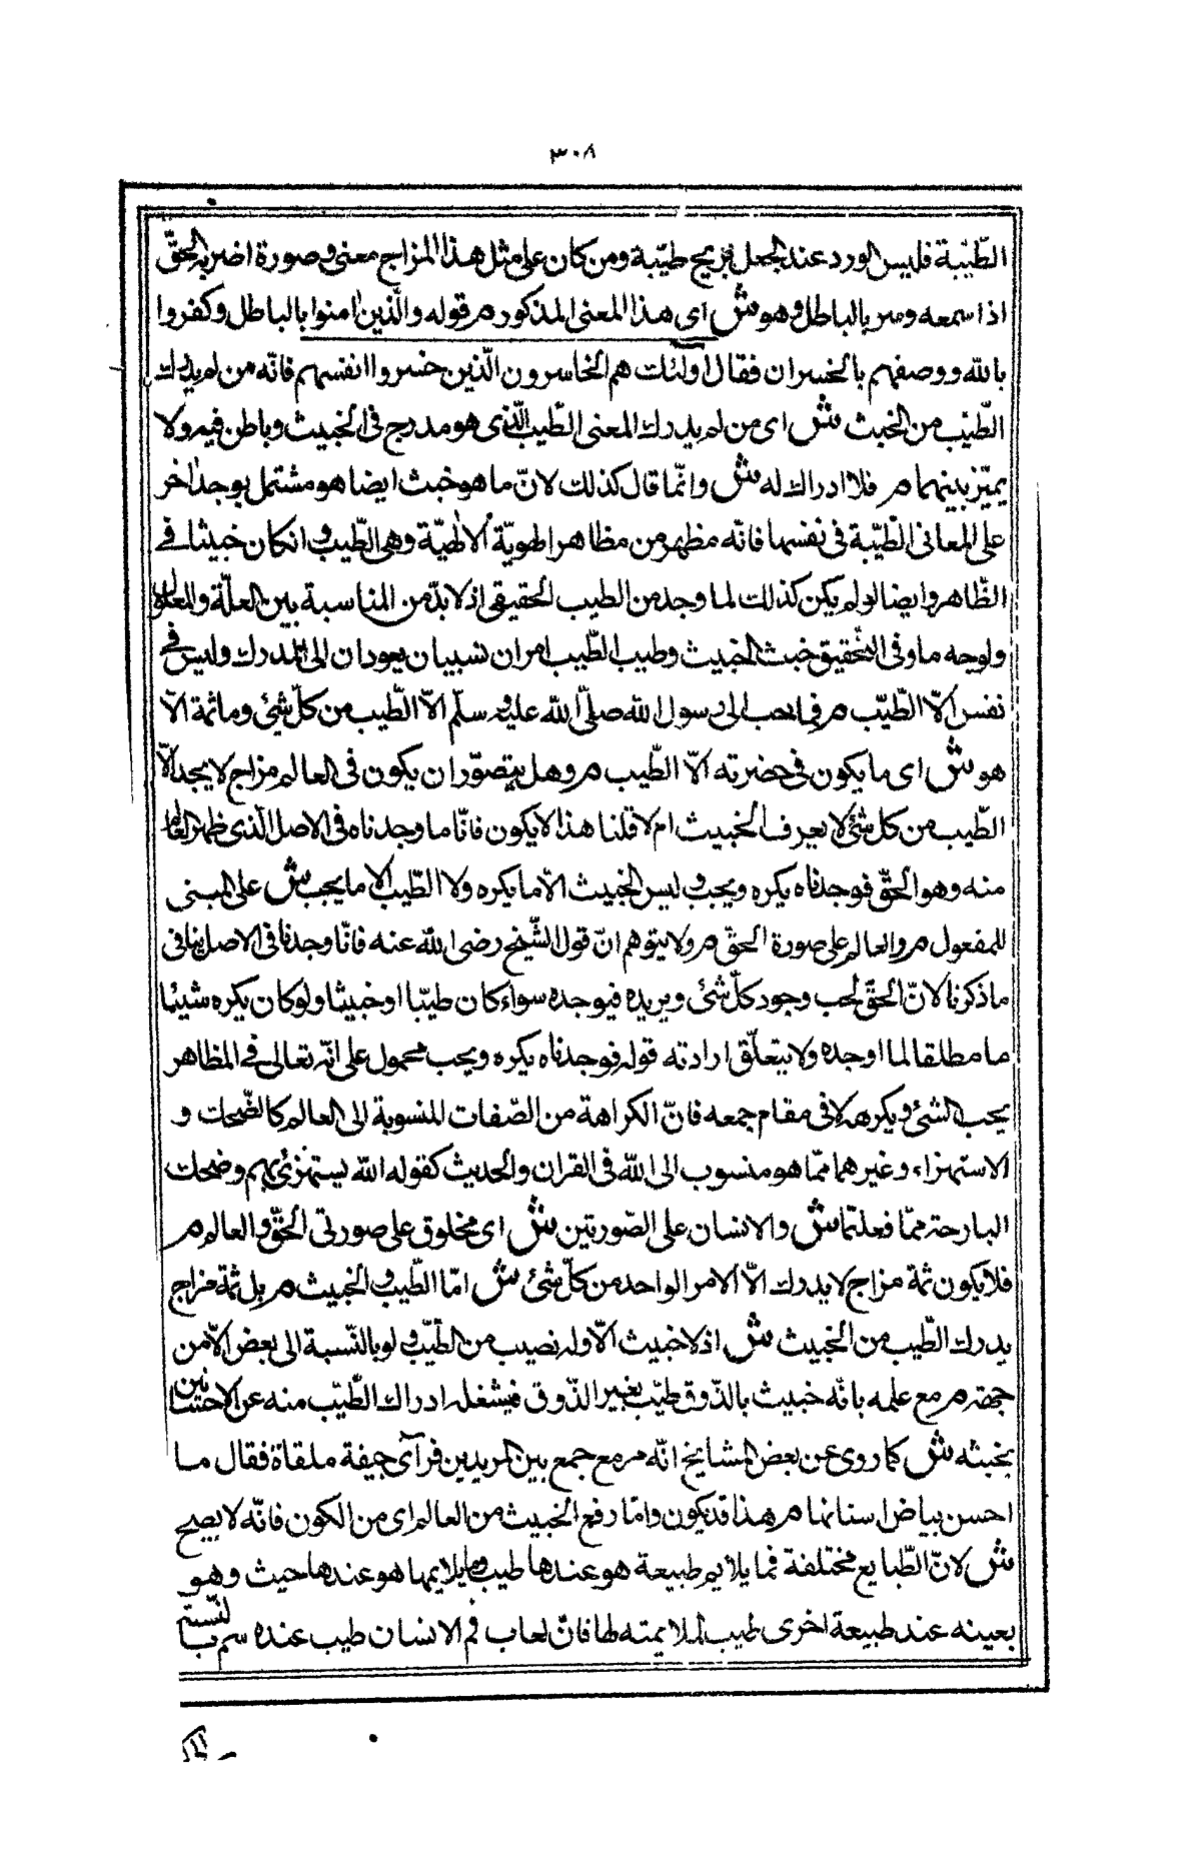 ٣٠٨
الطّيّبة فليس الورد عند الجعل بريح طيّبة ومن كان على مثل هذا المزاج معنى وصورة اضربه الحقّ
اذا سمعه وسر بالباطل وهو ش اى هذا المعنى المذكور م قوله والّذين اٰمنوا بالباطل وكفروا
بالله ووصفهم بالخسران فقال اولئك هم الخاسرون الّذين خسروا انفسهم فانّه من لم يدرك
الطّيّب من الخبث ش اى من لم يدرك المعنى الطّيّب الّذى هو مدرج فى الخبيث وباطن فيه ولا
يميّز بينهما م فلا ادراك له ش وانّما قال كذلك لانّ ما هو خبث ايضا هو مشتمل بوجه اٰخر
على المعانى الطّيّبة فى نفسها فانّه مظهر من مظاهر الهويّة الالٰهيّة وهى الطّيّب وانكان خبيثا فى
الظّاهر وايضا لو لم يكن كذلك لما وجد من الطيب الحقيقى اذ لابدّ من المناسبة بين العلّة والمعلول
ولوجه ما وفى التّحقيق خبث الخبيث وطيب الطّيب امران نسبيان يعودان الى المدرك وليس فى
نفس الّا الطّيّب م فما حب الى رسول الله صلّى الله عليه وسلّم الّا الطّيب من كلّ شئ وماثمة الّا
هو ش اى ما يكون فى حضرته الّا الطّيب م وهل يتصوّر ان يكون فى العالم مزاج لا يجد الّا
الطّيب من كل شئ لا يعرف الخبيث ام لا قلنا هذا لا يكون فانّا ما وجدناه فى الاصل الّذى ظهر العالم
منه وهو الحقّ فوجدناه يكره ويحب وليس الخبيث الّا ما يكره ولا الطّيب الّا ما يحب ش على المبنى
للمفعول م والعالم على صورة الحقّ م ولا يتوهم انّ قول الشّيخ رضى الله عنه فانّا وجدنا فى الاصل ينافى
ما ذكرنا لانّ الحقّ يحب وجود كلّ شئ ويريده فيوجده سواء كان طيّبا او خبيثا ولو كان يكره شيئا
ما مطلقا لما اوجده ولا يتعلّق ارادته قوله فوجدناه يكره ويحب محمول على انّه تعالى فى المظاهر
يحب الشئ ويكرهه لا فى مقام جمعه فانّ الكراهة من الصّفات المنسوبة الى العالم كالضّحك و
الاستهزاء وغيرهما ممّا هو منسوب الى الله فى القران والحديث كقوله الله يستهزئ بهم وضحك
البارحة ممّا فعلتما ش والانسان على الصّورتين ش اى مخلوق على صورتى الحقّ والعالم م
فلا يكون ثمة مزاج لا يدرك الّا الامر الواحد من كلّ شئ ش امّا الطّيب والخبيث م بل ثمة مزاج
يدرك الطّيب من الخبيث ش اذ لا خبيث الّا وله نصيب من الطّيّب ولو بالنّسبة الى بعض الامن
جهته م مع علمه بانّه خبيث بالذّوق طيّب بغير الذّوق فيشغله ادراك الطّيّب منه عن الاحساس
بخبثه ش كما روى عن بعض المشايخ انّه مر مع جمع بين المريدين فرآى جيفة ملقاة فقال ما
احسن بياض اسنانها م هذا قد يكون وامّا رفع الخبيث من العالم اى من الكون فانّه لا يصح
ش لانّ الطّبايع مختلفة فما يلايم طبيعة هو عندها طيب وما يلايمها هو عندها خبيث وهو
بعينه عند طبيعة اخرى طيب لملايمته لها فانّ لعاب فم الانسان طيب عنده سم بالنّسبة